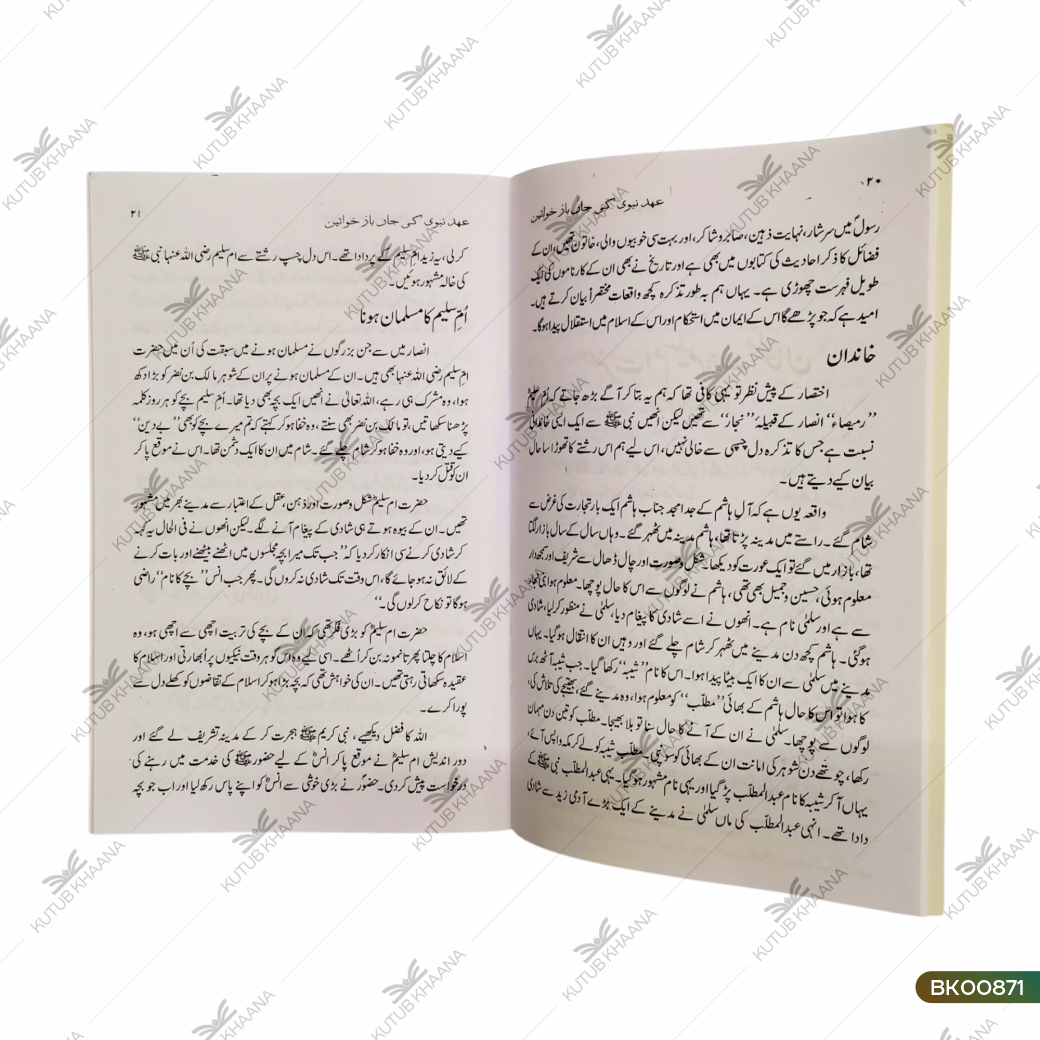 ۲۰
عہد نبوی کی جاں باز خواتین
رسولؐ میں سرشار، نہایت ذہین، صابر و شاکر، اور بہت سی خوبیوں والی، خاتون تھیں وان کے
فضائل کا ذکر احادیث کی کتابوں میں بھی ہے اور تاریخ نے بھی ان کے کارناموں کی ایک
طویل فہرست چھوڑی ہے۔ یہاں ہم بہ طور تذکرہ کچھ واقعات مختصراً بیان کرتے ہیں۔
امید ہے کہ جو پڑھے گا اس کے ایمان میں استحکام اور اس کے اسلام میں استقلال پیدا ہوگا۔
خاندان
اختصار کے پیش نظر تو یہی کافی تھا کہ ہم یہ بتا کر آگے بڑھ جاتے کہ اُمّ سلیمؓ
”رمیصاء“ انصار کے قبیلۂ ”نجار“ سے تھیں لیکن اُنھیں نبی ﷺ سے ایک ایسی خاندانی
نسبت ہے جس کا تذکرہ دل چسپی سے خالی نہیں، اس لیے ہم اس رشتے کا تھوڑا سا حال
بیان کیے دیتے ہیں۔
واقعہ یوں ہے کہ آلِ ہاشم کے جد امجد جناب ہاشم ایک بار تجارت کی غرض سے
شام گئے۔ راستے میں مدینہ پڑتا تھا، ہاشم مدینہ میں ٹھہر گئے۔ وہاں سال کے سال بازار لگتا
تھا، بازار میں گئے تو ایک عورت کو دیکھا، شکل و صورت اور چال ڈھال سے شریف اور سمجھدار
معلوم ہوئی، حسین و جمیل بھی تھی، ہاشم نے لوگوں سے اس کا حال پوچھا۔ معلوم ہوا بنی نجار
سے ہے اور سلمٰی نام ہے۔ انھوں نے اسے شادی کا پیغام دیا، سلمٰی نے منظور کر لیا، شادی
ہوگئی۔ ہاشم کچھ دن مدینے میں ٹھہر کر شام چلے گئے اور وہیں ان کا انتقال ہوگیا۔ یہاں
مدینے میں سلمٰی سے ان کا ایک بیٹا پیدا ہوا۔ اس کا نام ”شیبہ“ رکھا گیا۔ جب شیبہ آٹھ برس
کا ہوا تو اس کا حال ہاشم کے بھائی ”مطلب“ کو معلوم ہوا، وہ مدینے گئے، بھتیجے کی تلاش کی،
لوگوں سے پوچھا۔ سلمٰی نے ان کے آنے کا حال سنا تو بلا بھیجا۔ مطلب کو تین دن مہمان
رکھا، چوتھے دن شوہر کی امانت ان کے بھائی کو سونپی۔ مطلب شیبہ کو لے کر مکہ واپس آئے،
یہاں آ کر شیبہ کا نام عبدالمطلب پڑ گیا اور یہی نام مشہور ہوگیا۔ یہی عبدالمطلب نبی ﷺ کے
دادا تھے۔ انہی عبدالمطلب کی ماں سلمٰی نے مدینے کے ایک بڑے آدمی زید سے شادی
۲۱
عہد نبوی کی جاں باز خواتین
کر لی، یہ زید امّ سلیم کے پردادا تھے۔ اس دل چسپ رشتے سے ام سلیم رضی اللہ عنہا نبی ﷺ
کی خالہ مشہور ہوئیں۔
اُمّ سلیم کا مسلمان ہونا
انصار میں سے جن بزرگوں نے مسلمان ہونے میں سبقت کی اُن میں حضرت
امّ سلیم رضی اللہ عنہا بھی ہیں۔ ان کے مسلمان ہونے پر ان کے شوہر مالک بن نضر کو بڑا دکھ
ہوا، وہ مشرک ہی رہے، اللہ تعالیٰ نے انھیں ایک بچہ بھی دیا تھا۔ اُمّ سلیم بچے کو ہر روز کلمہ
پڑھنا سکھاتیں، تو مالک بن نضر بھی سنتے، وہ خفا ہو کر کہتے کہ تم میرے بچے کو بھی ”بے دین“
کیے دیتی ہو، اور وہ خفا ہو کر شام چلے گئے۔ شام میں ان کا ایک دشمن تھا۔ اس نے موقع پا کر
ان کو قتل کر دیا۔
حضرت ام سلیمؓ شکل و صورت اور ذہن، عقل کے اعتبار سے مدینے بھر میں مشہور
تھیں۔ ان کے بیوہ ہوتے ہی شادی کے پیغام آنے لگے۔ لیکن انھوں نے فی الحال یہ کہہ
کر شادی کرنے سے انکار کر دیا کہ ”جب تک میرا بچہ مجلسوں میں اٹھنے بیٹھنے اور بات کرنے
کے لائق نہ ہو جائے گا، اس وقت تک شادی نہ کروں گی۔ پھر جب انس ”بچے کا نام“ راضی
ہوگا تو نکاح کر لوں گی۔“
حضرت ام سلیمؓ کو بڑی فکر تھی کہ ان کے بچے کی تربیت اچھی سے اچھی ہو، وہ
اسلام کا چلتا پھرتا نمونہ بن کر اُٹھے۔ اسی لیے وہ اس کو ہر وقت نیکیوں پر اُبھارتی اور اسلام کا
عقیدہ سکھاتی رہتی تھیں۔ ان کی خواہش تھی کہ بچہ بڑا ہو کر اسلام کے تقاضوں کو کھلے دل سے
پورا کرے۔
اللہ کا فضل دیکھیے، نبی کریم ﷺ ہجرت کر کے مدینہ تشریف لے گئے اور
دور اندیش ام سلیمؓ نے موقع پا کر انسؓ کے لیے حضور ﷺ کی خدمت میں رہنے کی
درخواست پیش کر دی۔ حضورؐ نے بڑی خوشی سے انسؓ کو اپنے پاس رکھ لیا اور اب جو بچہ
KUTUB KHAANA
BK00871